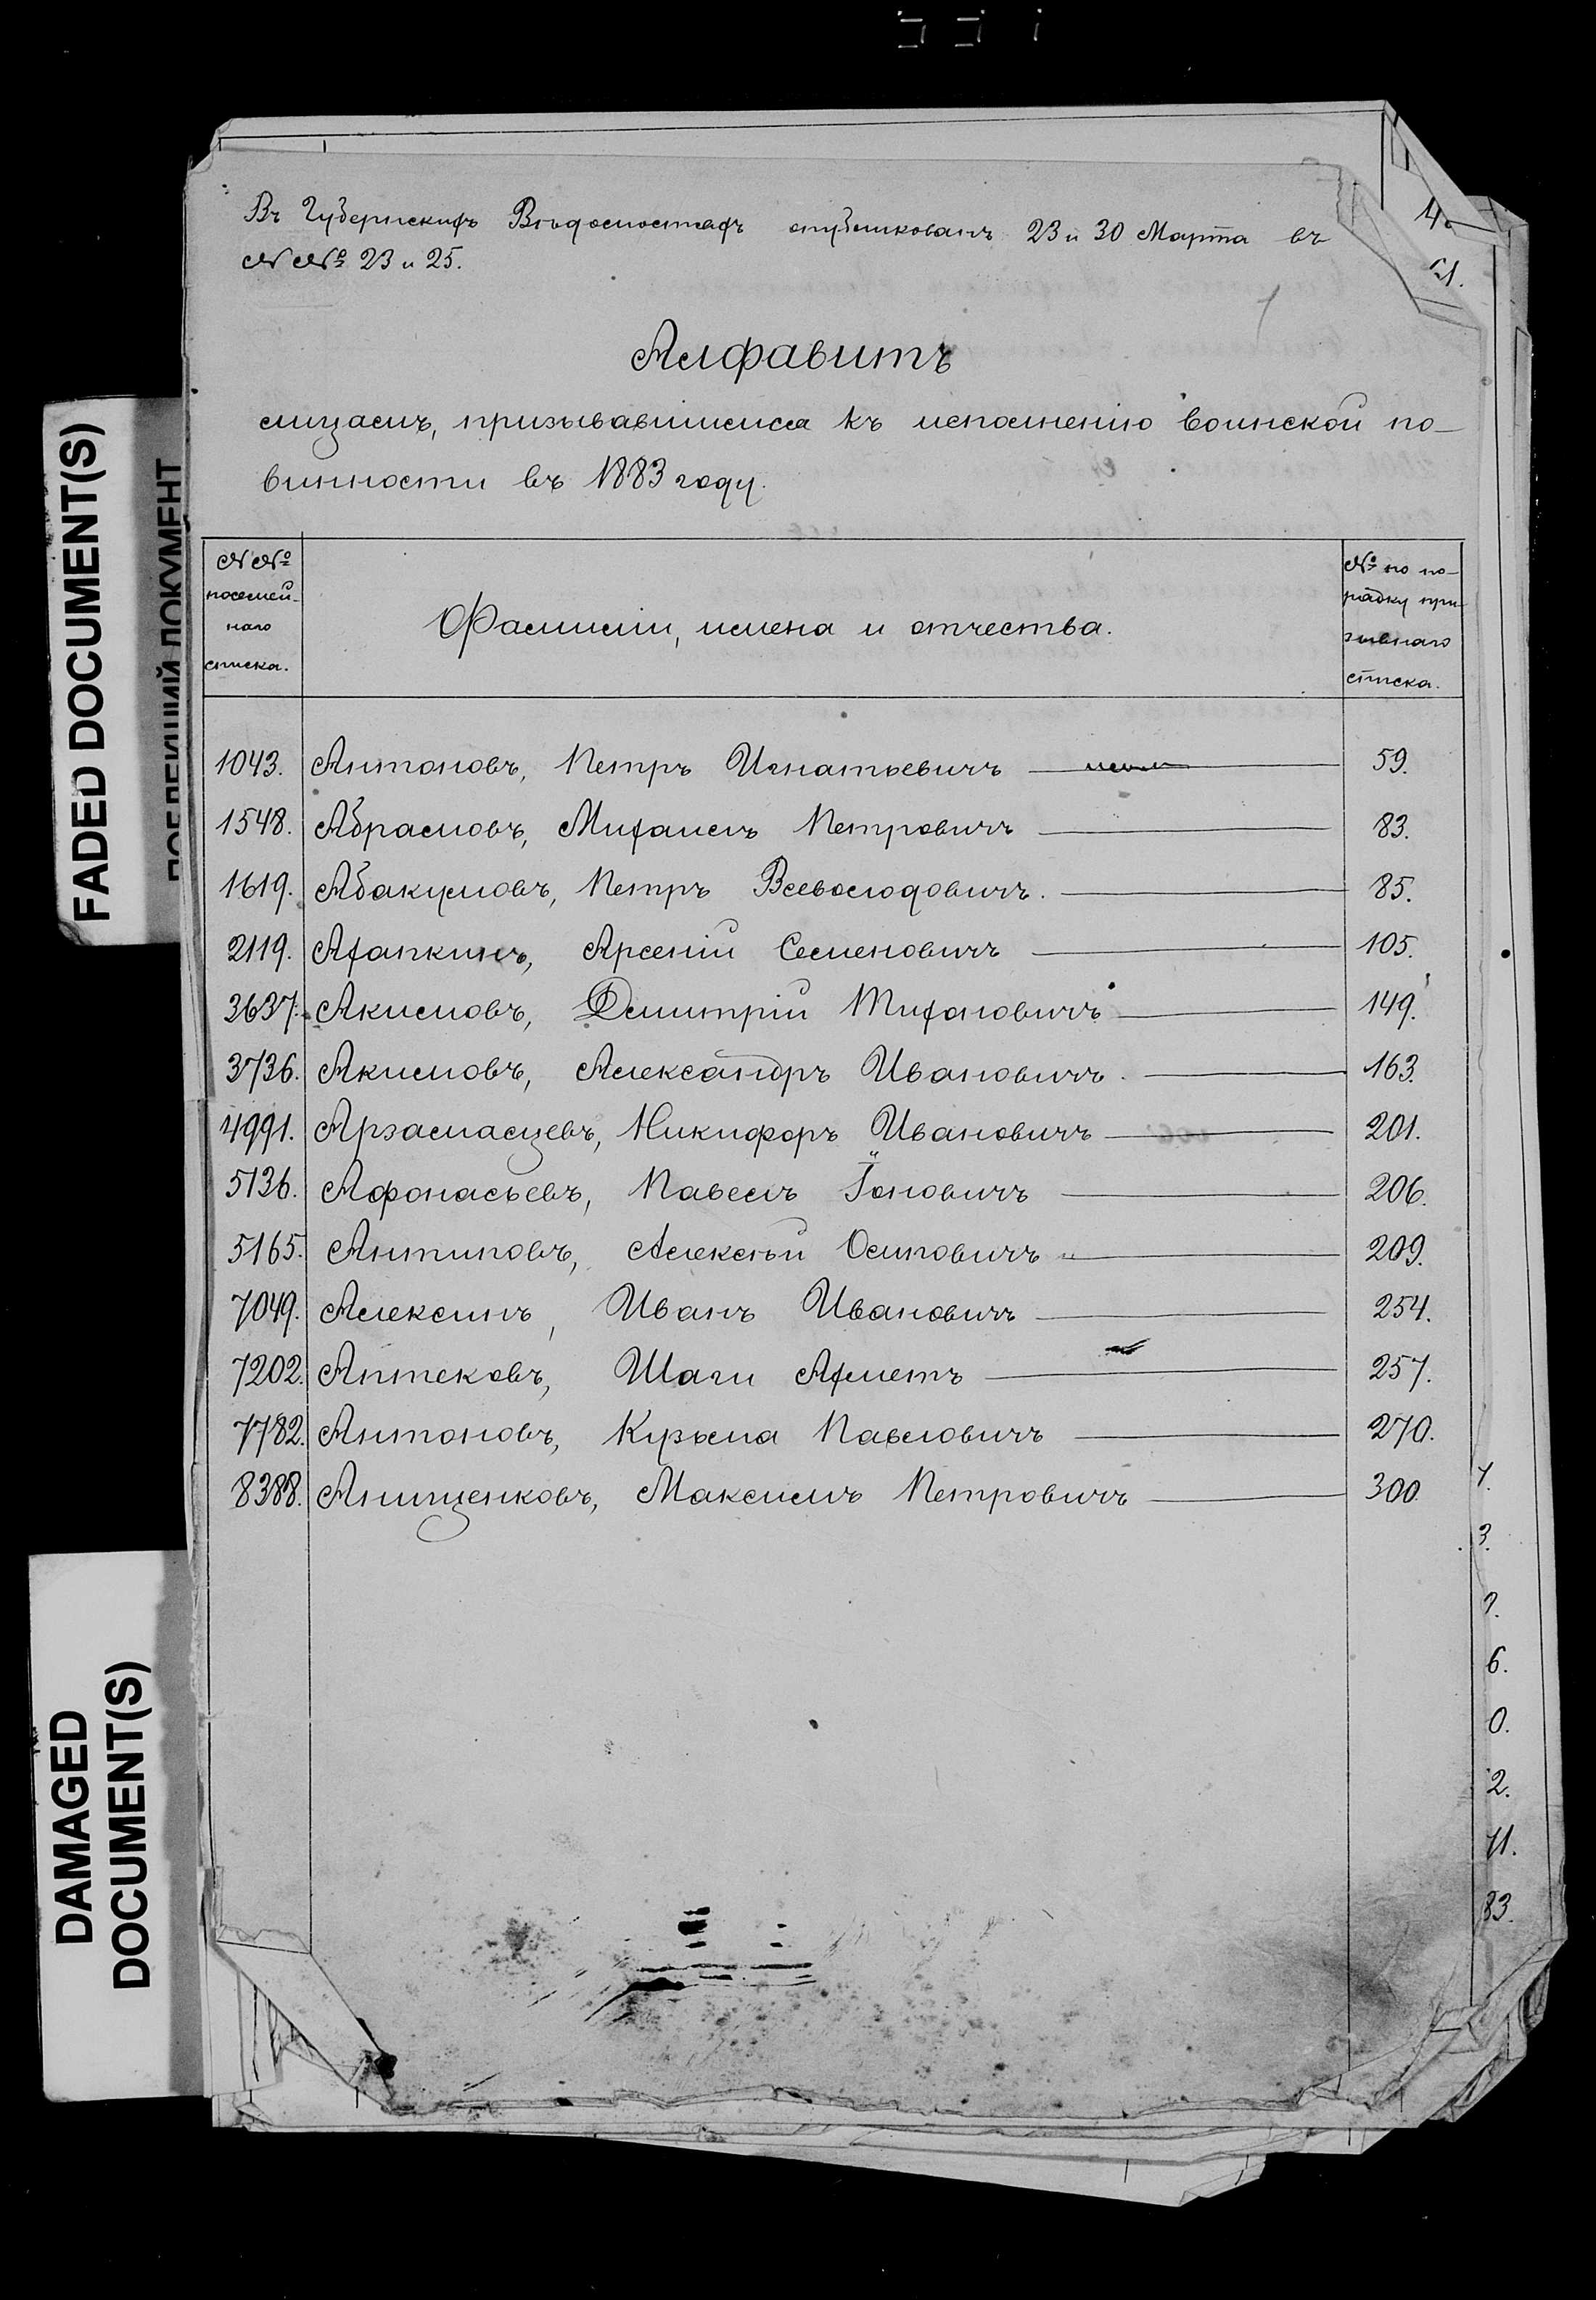 Въ Губернскихъ Вѣдомостяхъ опубликованъ 23 и 30 Марта въ
№№ 23 и 25.
Алфавитъ
лицамъ, призывавшимся къ исполненію воинской по-
винности въ 1883 году.
№№ посемей-наго списка.
Фамиліи, имена и отчества.
№ по по-рядку при-зывнаго списка.
1043. Антоновъ, Петръ Игнатьевичъ 59.
1548. Абрамовъ, Михаилъ Петровичъ 83.
1619. Абакумовъ, Петръ Всеволодовичъ. 85.
2119. Агапкинъ, Арсеній Семеновичъ 105.
3637. Акимовъ, Дмитрій Тихоновичъ 149.
3736. Акимовъ, Александръ Ивановичъ. 163.
4991. Арзамасцевъ, Никифоръ Ивановичъ 201.
5136. Афонасьевъ, Павелъ Іоновичъ 206.
5165. Антиповъ, Алексѣй Осиповичъ 209.
7049. Алексинъ, Иванъ Ивановичъ 254.
7202. Аптековъ, Шаги Ахметъ 257.
7782. Антоновъ, Кузьма Павловичъ 270.
8388. Анищенковъ, Максимъ Петровичъ 300.
FADED DOCUMENT(S)
DAMAGED
DOCUMENT(S)
6.
0.
2.
11.
83.